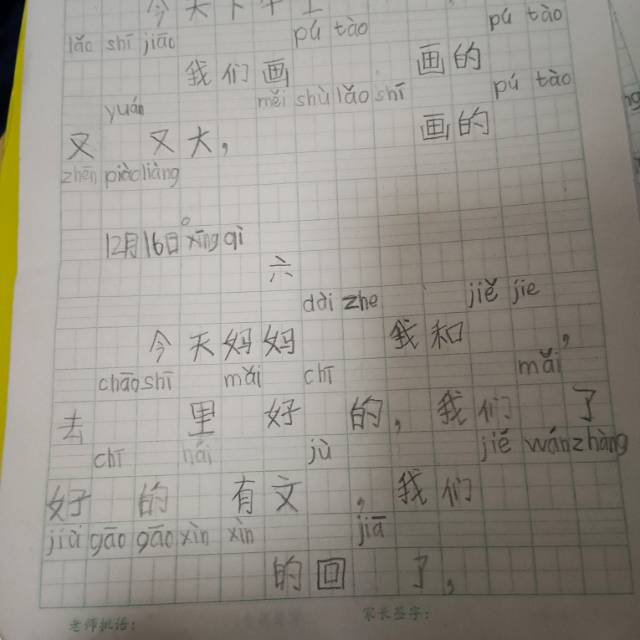 今天下午上 pú tào pú tào
lǎo shī jiāo
我们画 画的 pú tào
yuán měi shù lǎo shī
又 又大, 画的
zhēn piào liàng
12月16日 xīng qì
六
dài zhe jiě jie
今天妈妈 我和 ,
chāo shī mǎi chī mǎi
去 里 好 的, 我们 了
chī hái jù jiě wán zhàng
好 的 有文 , 我们
jiù gāo gāo xìn xìn jiā
的回 了,
老师批语: 家长签字: